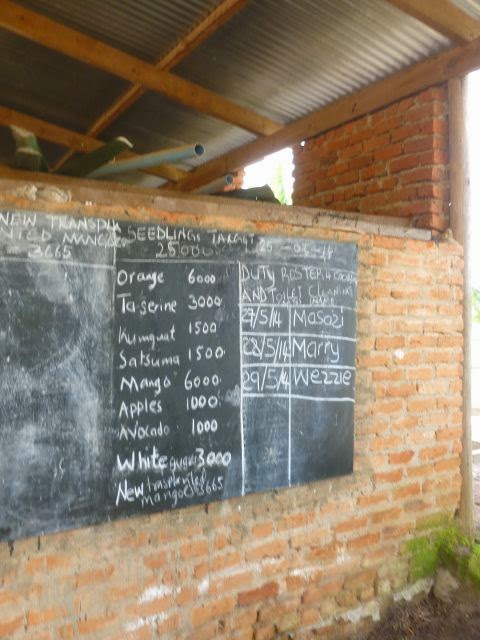 NEW TRANSPLA
NTED MANGOES
3665
SEEDLINGS TARGET
25000
25-03-14
Orange 6000
Taserine 3000
Kumquat 1500
Satsuma 1500
Mango 6000
Apples 1000
Avocado 1000
White guava 3000
New transplanted
mangoes 3665
DUTY ROSTER 4 COOKING
AND TOILET CLEANING
NAME
27/5/14 Masozi
28/5/14 Marry
29/5/14 Wezzie